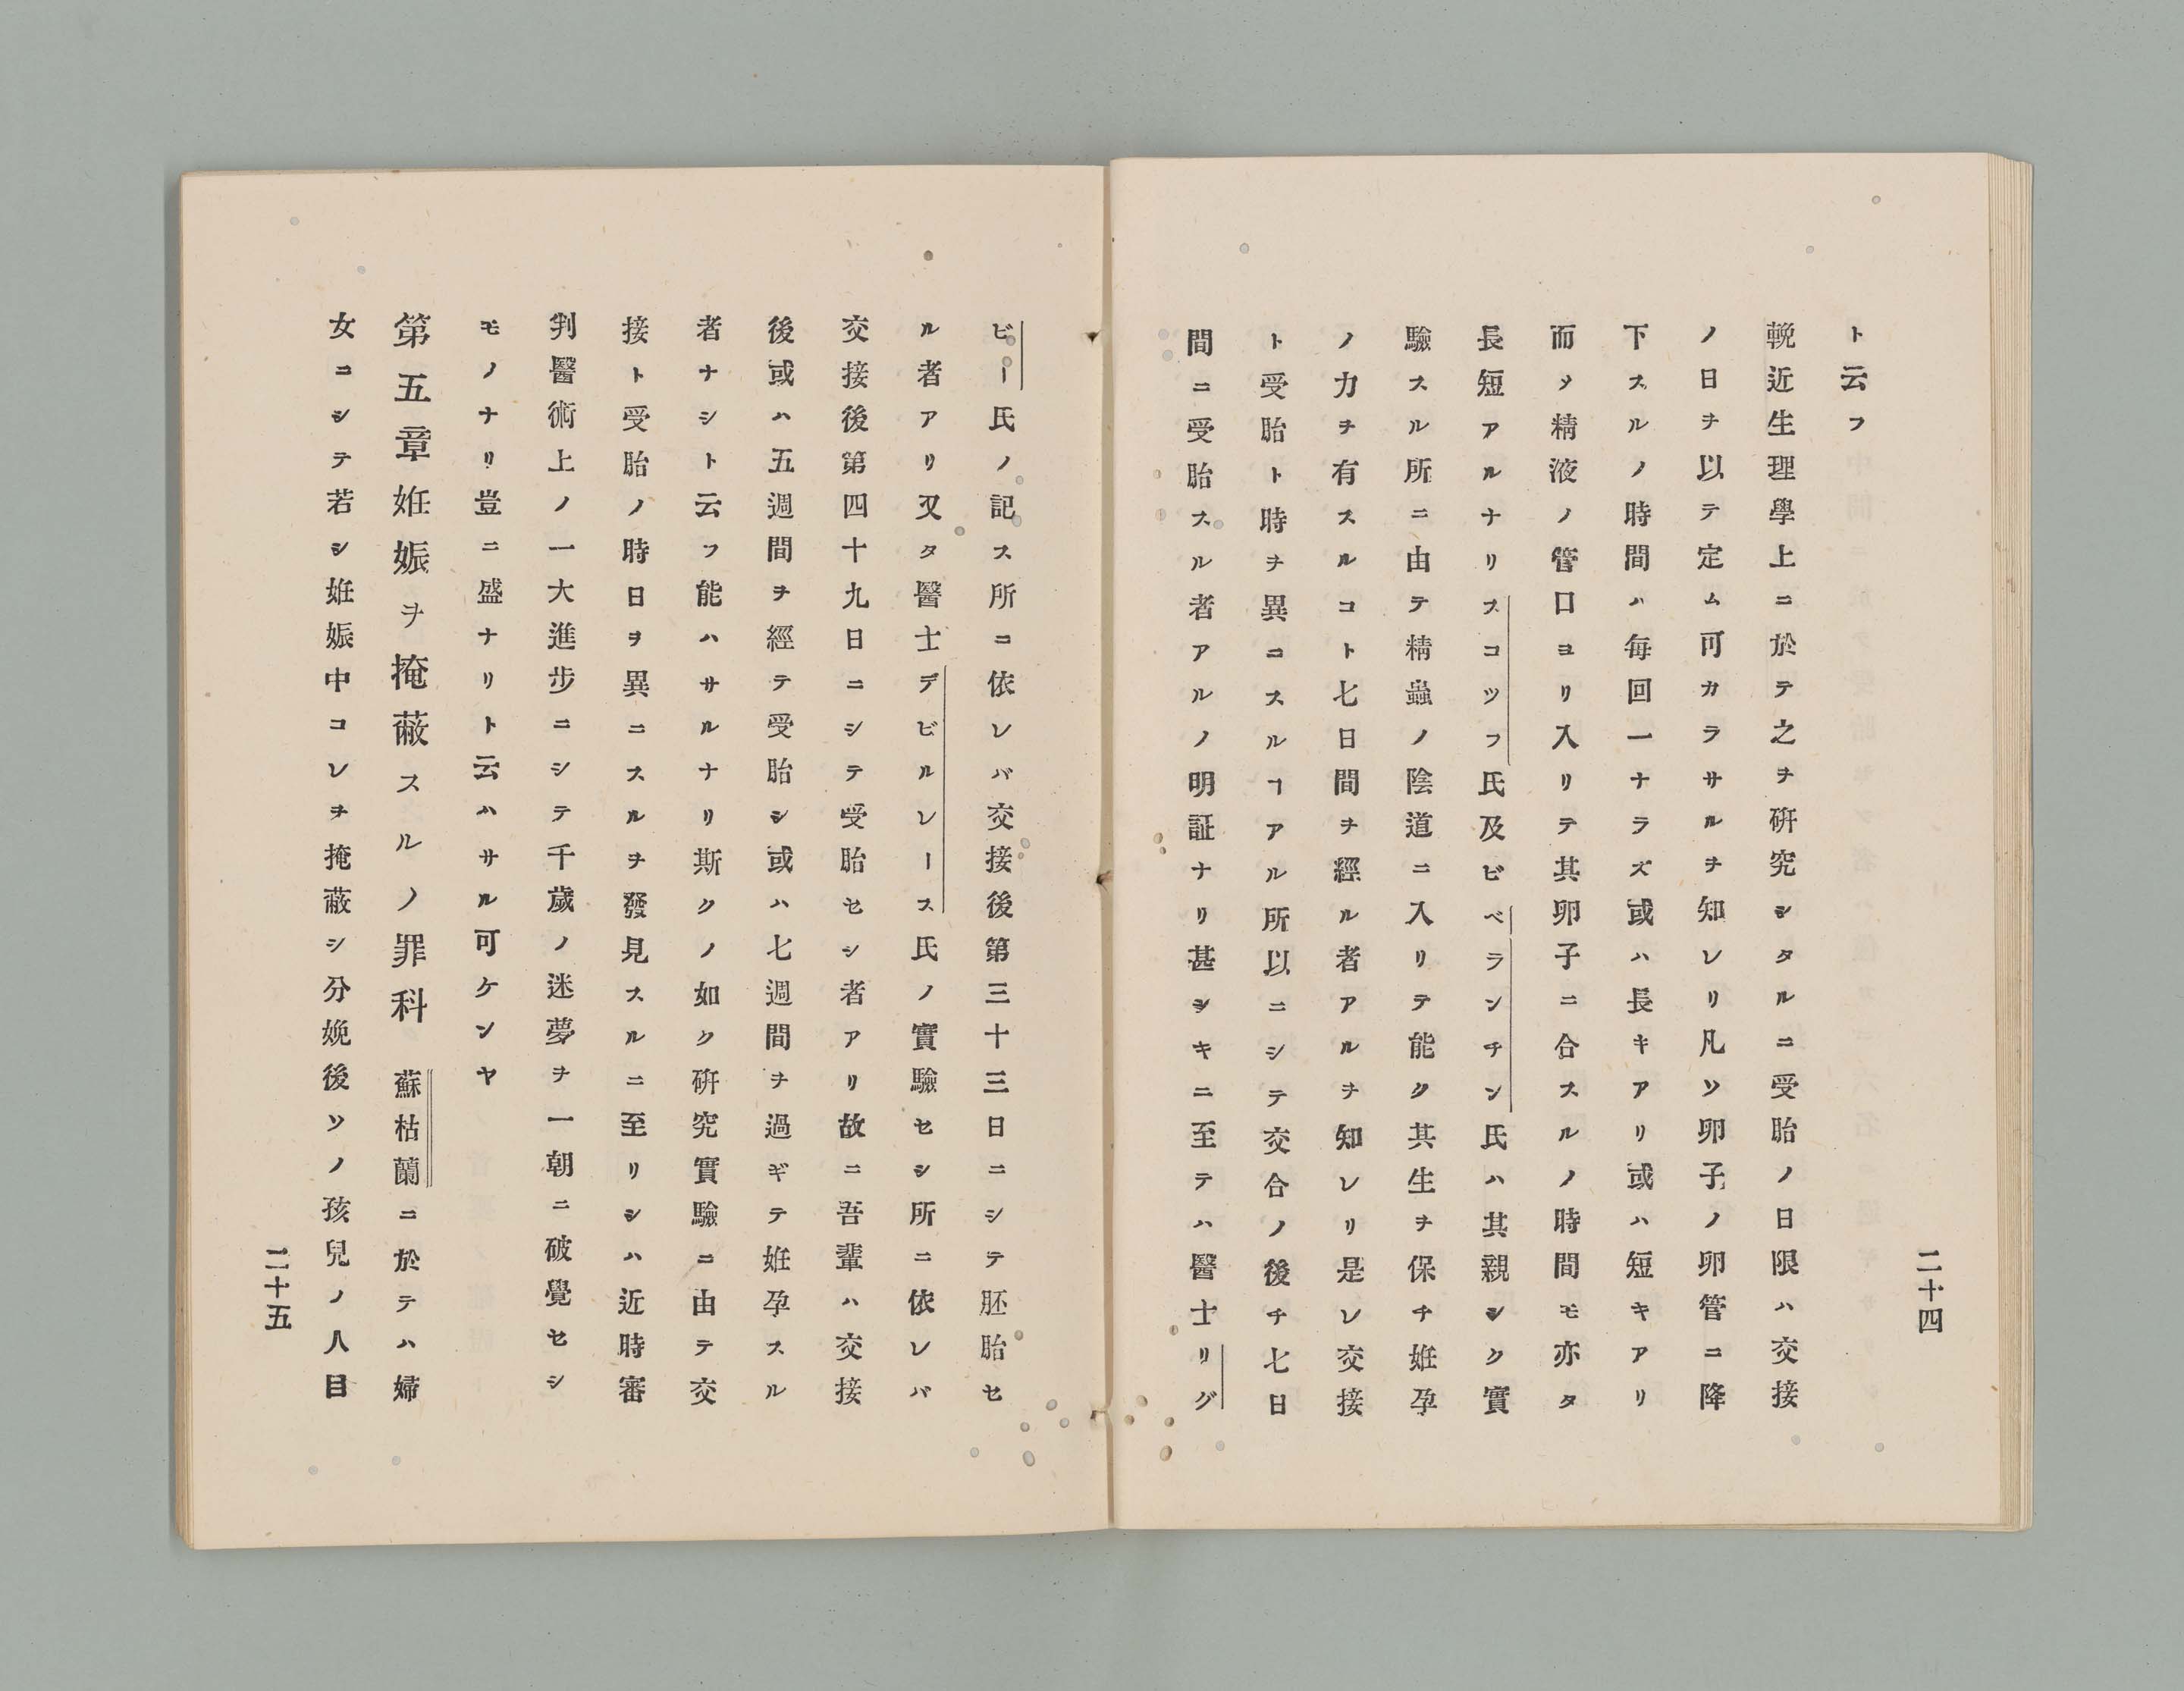 二十四
ト云フ
輓近生理學上ニ於テ之ヲ硏究シタルニ受胎ノ日限ハ交接
ノ日ヲ以テ定ム可カラサルヲ知レリ凡ソ卵子ノ卵管ニ降
下スルノ時間ハ毎回一ナラズ或ハ長キアリ或ハ短キアリ
而〆精液ノ管口ヨリ入リテ其卵子ニ合スルノ時間モ亦タ
長短アルナリスコツフ氏及ビベランチン氏ハ其親シク實
驗スル所ニ由テ精蟲ノ陰道ニ入リテ能ク其生ヲ保チ姙孕
ノ力ヲ有スルコト七日間ヲ經ル者アルヲ知レリ是レ交接
ト受胎ト時ヲ異ニスルヿアル所以ニシテ交合ノ後チ七日
間ニ受胎スル者アルノ明証ナリ甚シキニ至テハ醫士リグ
ビー氏ノ記ス所ニ依レバ交接後第三十三日ニシテ胚胎セ
ル者アリ又タ醫士デビルレース氏ノ實驗セシ所ニ依レバ
交接後第四十九日ニシテ受胎セシ者アリ故ニ吾輩ハ交接
後或ハ五週間ヲ經テ受胎シ或ハ七週間ヲ過ギテ姙孕スル
者ナシト云フ能ハサルナリ斯クノ如ク硏究實驗ニ由テ交
接ト受胎ノ時日ヲ異ニスルヲ發見スルニ至リシハ近時審
判醫術上ノ一大進步ニシテ千歲ノ迷夢ヲ一朝ニ破覺セシ
モノナリ豈ニ盛ナリト云ハサル可ケンヤ
第五章姙娠ヲ掩蔽スルノ罪科　蘇枯蘭ニ於テハ婦
女ニシテ若シ姙娠中コレヲ掩蔽シ分娩後ソノ孩兒ノ人目
二十五